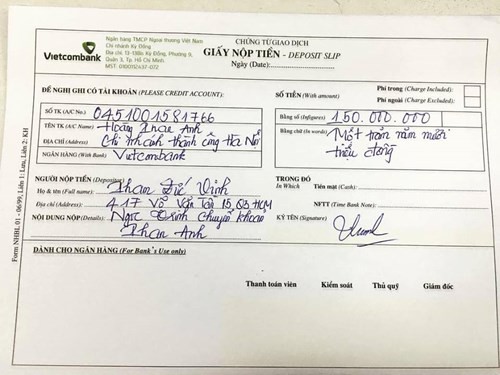 Vietcombank
Ngân hàng TMCP Ngoại thương Việt Nam
Chi nhánh Kỳ Đồng
Địa chỉ: 13-13Bis Kỳ Đồng, Phường 9,
Quận 3, Tp. Hồ Chí Minh
MST: 0100112437-072
CHỨNG TỪ GIAO DỊCH
GIẤY NỘP TIỀN - DEPOSIT SLIP
Ngày (Date):
ĐỀ NGHỊ GHI CÓ TÀI KHOẢN (PLEASE CREDIT ACCOUNT):
SỐ TK (A/C No.) 0451001581766
TÊN TK (A/C Name) Hoàng Phan Anh
ĐỊA CHỈ (Address) Chi nhánh thành công Hà Nội
NGÂN HÀNG (With Bank) Vietcombank
SỐ TIỀN (With amount)
Phí trong (Charge Included)
Phí ngoài (Charge Excluded)
Bằng số (Infigures) 150.000.000
Bằng chữ (In words) Một trăm năm mươi
triệu đồng
NGƯỜI NỘP TIỀN (Depositor)
Họ & tên (Full name): Phan Đức Vinh
Địa chỉ (Address): 417 Võ Văn Tần P5, Q3 HCM
NỘI DUNG NỘP (Details): Ngọc Trinh chuyển khoản
Phan Anh
TRONG ĐÓ
In Which
Tiền mặt (Cash):
NFTT (Time Bank Note):
KÝ TÊN (Signature)
DÀNH CHO NGÂN HÀNG (For Bank's Use only)
Thanh toán viên Kiểm soát Thủ quỹ Giám đốc
Form NHBL 01 - 06/99, Liên 1: Lưu, Liên 2: KH